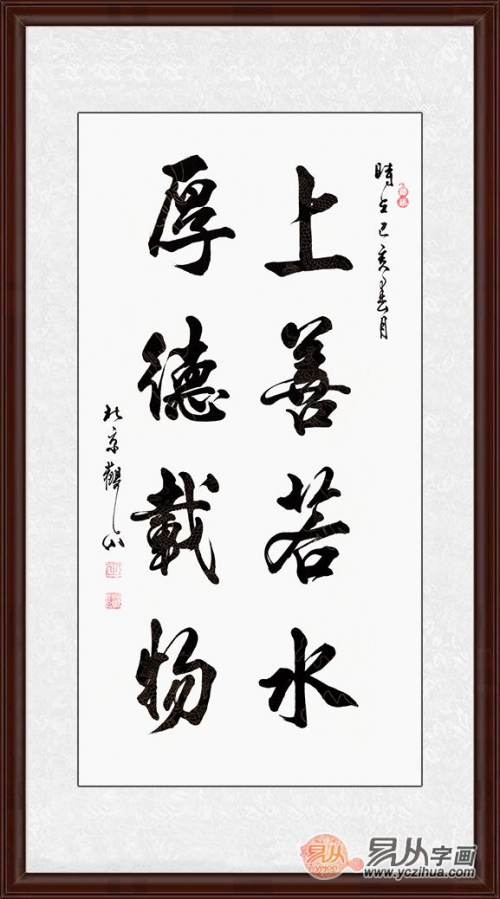 時在己亥春月
上善若水
厚德載物
北京觀山
易从字画
www.yczihua.com